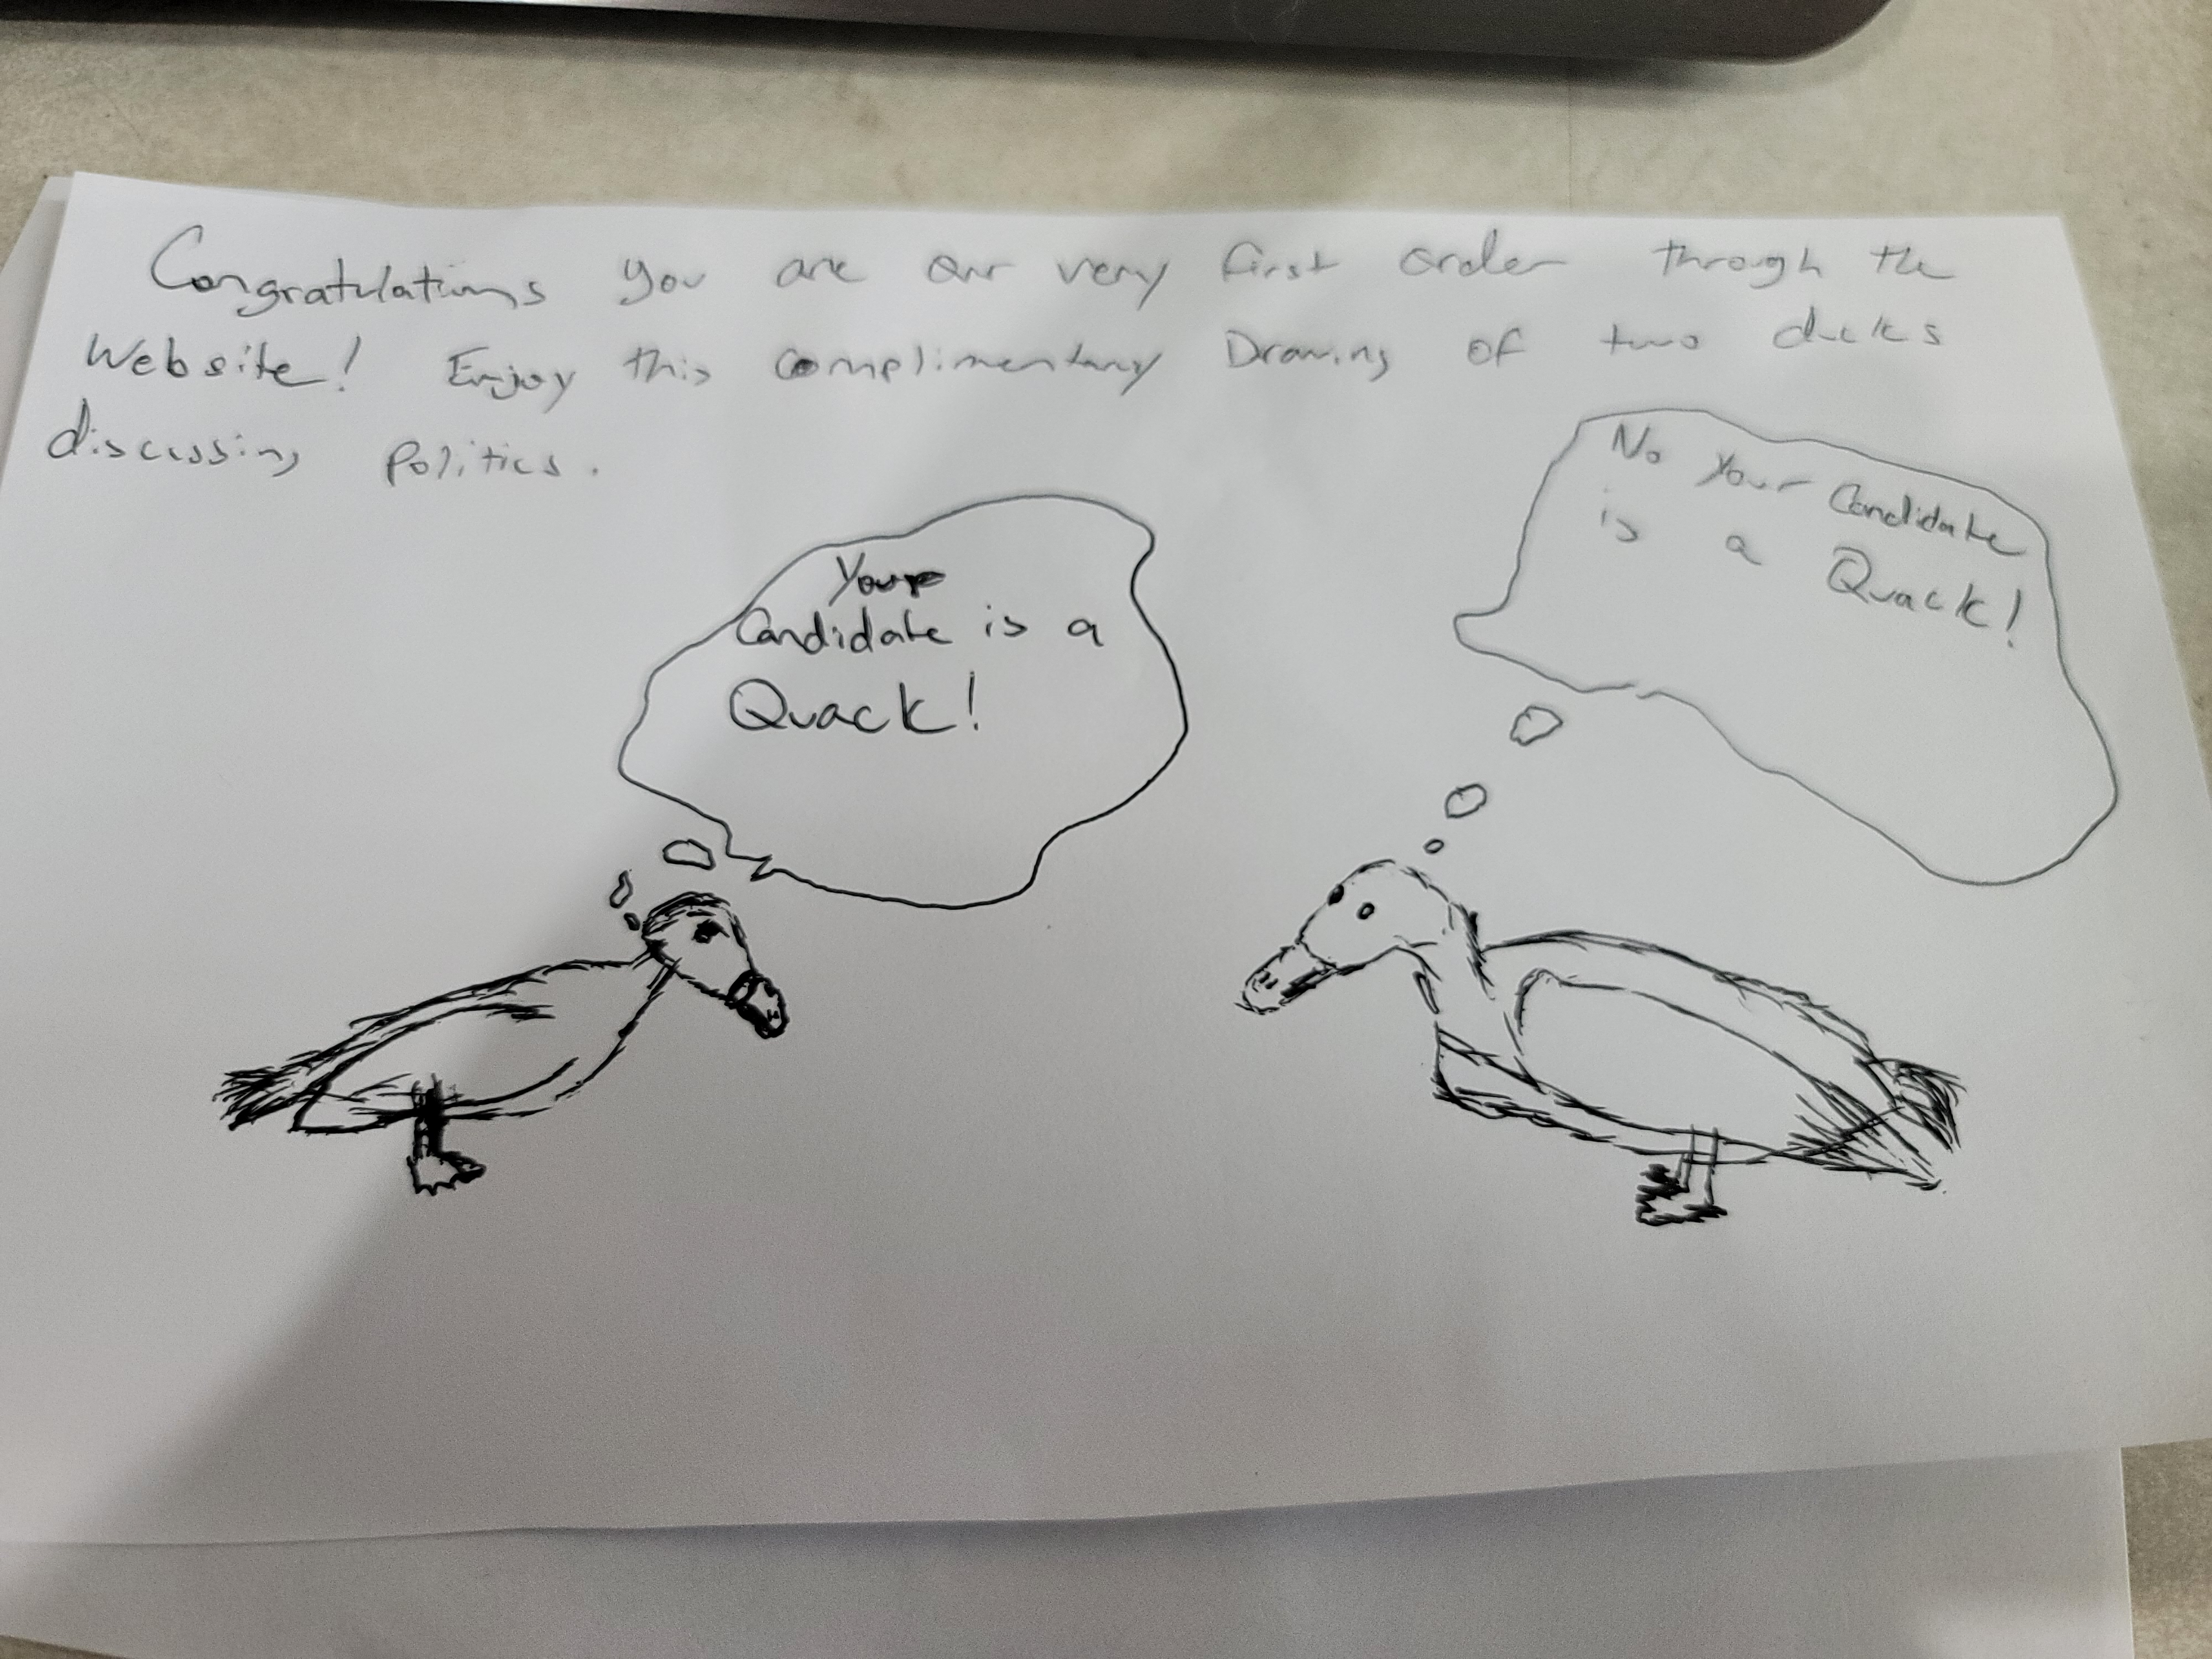 Congratulations you are our very first order through the
Website! Enjoy this complimentary Drawing of two ducks
discussing politics.
Your
Candidate is a
Quack!
No Your Candidate
is a Quack!